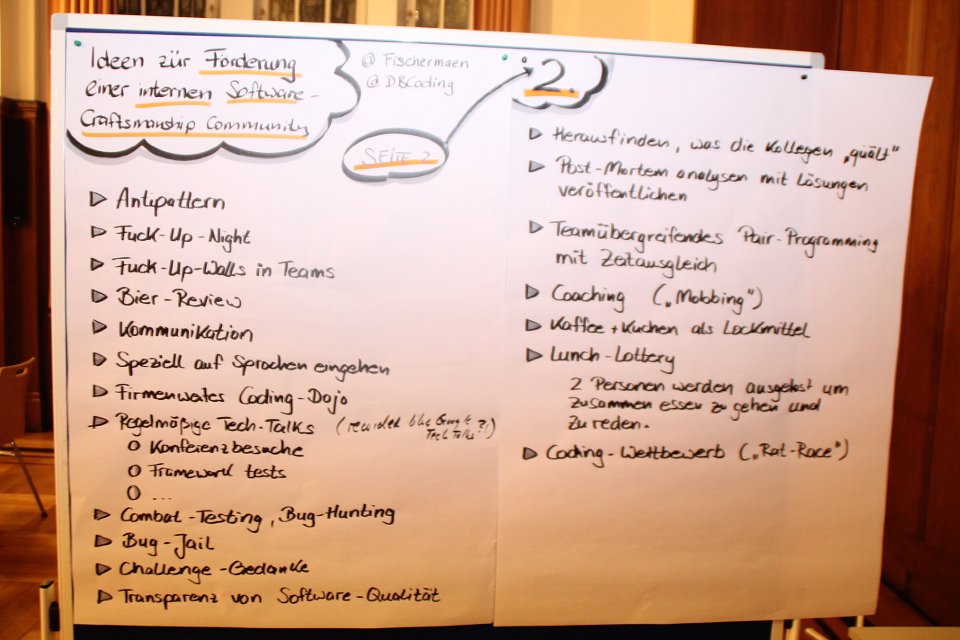 Ideen zür Förderung
einer internen Software-
Craftsmanship Community
@ Fischermaen
@ DBCoding
SEITE 2
▷ Antipattern
▷ Fuck-Up-Night
▷ Fuck-Up-Walls in Teams
▷ Bier-Review
▷ Kommunikation
▷ Speziell auf Sprachen eingehen
▷ Firmenweites Coding-Dojo
▷ Regelmäßige Tech-Talks (recorded like Google Tech Talks?!)
O Konferenzbesuche
O Framework tests
O ...
▷ Combat-Testing, Bug-Hunting
▷ Bug-Jail
▷ Challenge-Gedanke
▷ Transparenz von Software-Qualität
2.
▷ Herausfinden, was die Kollegen „quält"
▷ Post-Mortem analysen mit Lösungen
veröffentlichen
▷ Teamübergreifendes Pair-Programming
mit Zeitausgleich
▷ Coaching („Mobbing")
▷ Kaffee + Kuchen als Lockmittel
▷ Lunch-Lottery
2 Personen werden ausgelost um
zusammen essen zu gehen und
zu reden.
▷ Coding-Wettbewerb („Rat-Race")